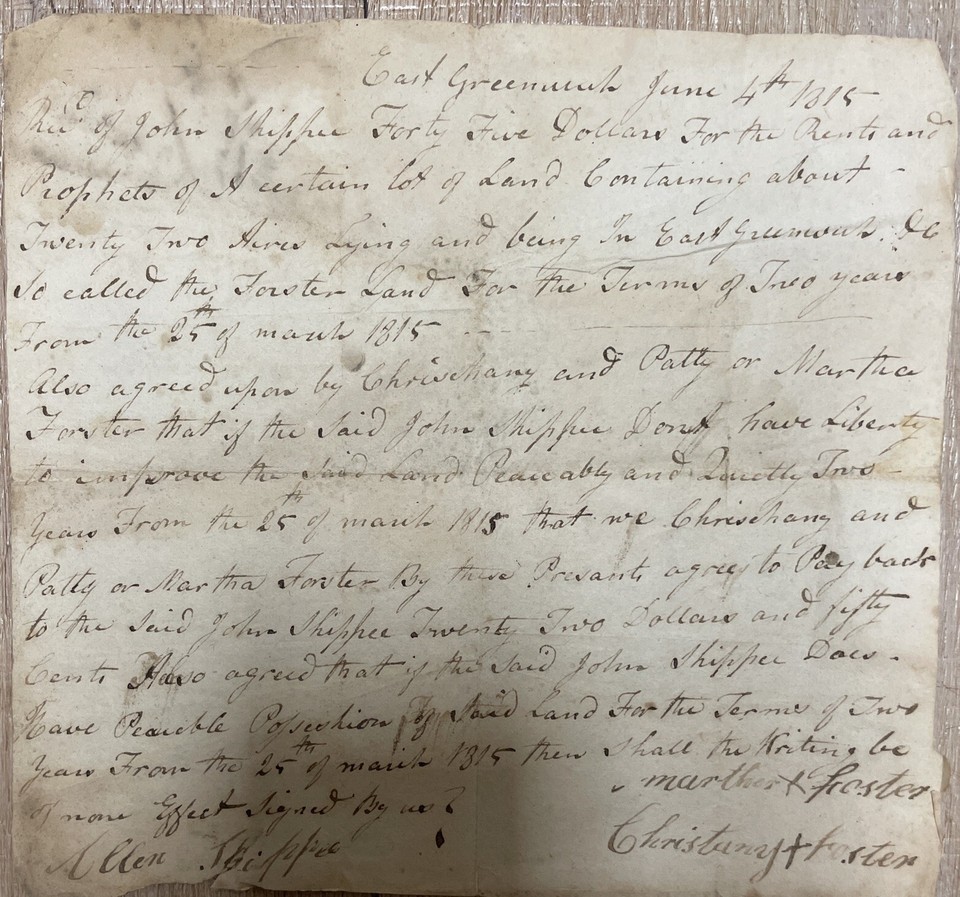 East Greenwich June 4th 1815
Recd of John Shippee Forty Five Dollars For the Rents and
Prophets of A certain lot of Land Containing about -
Twenty Two Aires Lying and being In East Greenwich &c
So called the Forster Land For the Terms of Two years
From the 25th of march 1815
Also agreed upon by Chrischany and Patty or Martha
Forster that if the Said John Shippee Dont have Liberty
to improve the said Land Peaceably and Quietly Two -
Years From the 25th of march 1815 that we Chrischany and
Patty or Martha Forster By these Presants agree to Pay back
to the Said John Shippee Twenty Two Dollars and fifty
Cents Also agreed that if the Said John Shippee Does -
Have Peacible Possesshion of Said Land For the Terms of Two
Years From the 25th of march 1815 then Shall the Writing be
of none Effect Signed By us
marther X Foster
Christany X Foster
Allen Shippee